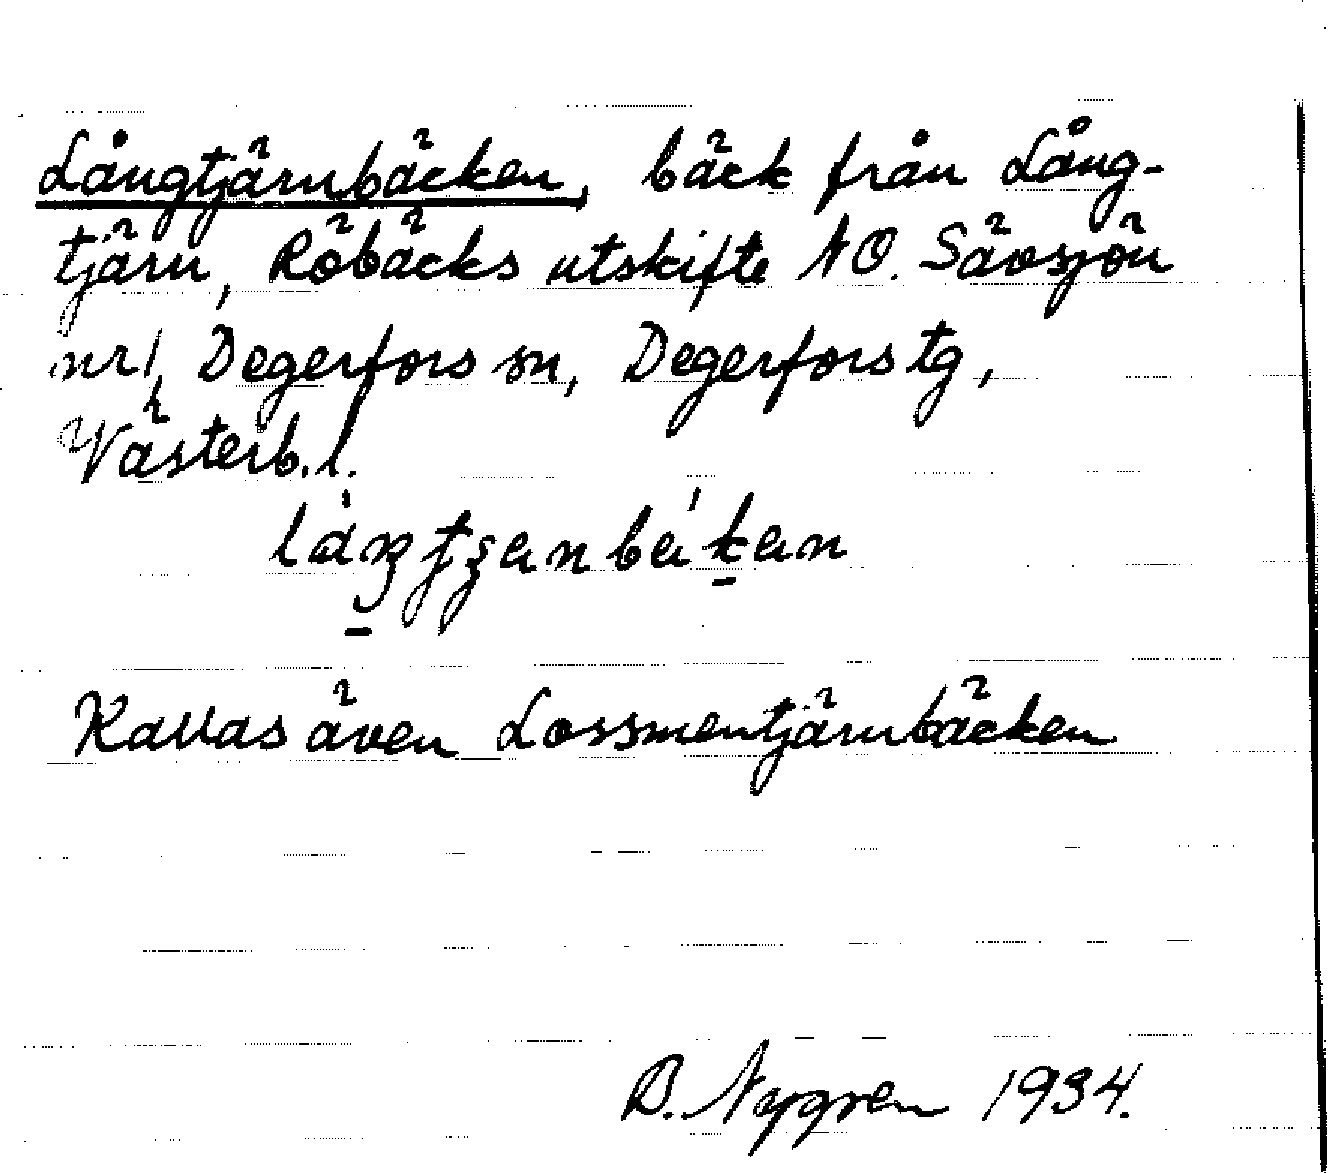 Långtjärnbäcken, bäck från Lång-
tjärn, Röbäcks utskifte NO. Sävsjön
nr 1, Degerfors sn, Degerfors tg,
Västerb. l.
Kallas även Lossmentjärnbäcken
B. Nygren 1934.